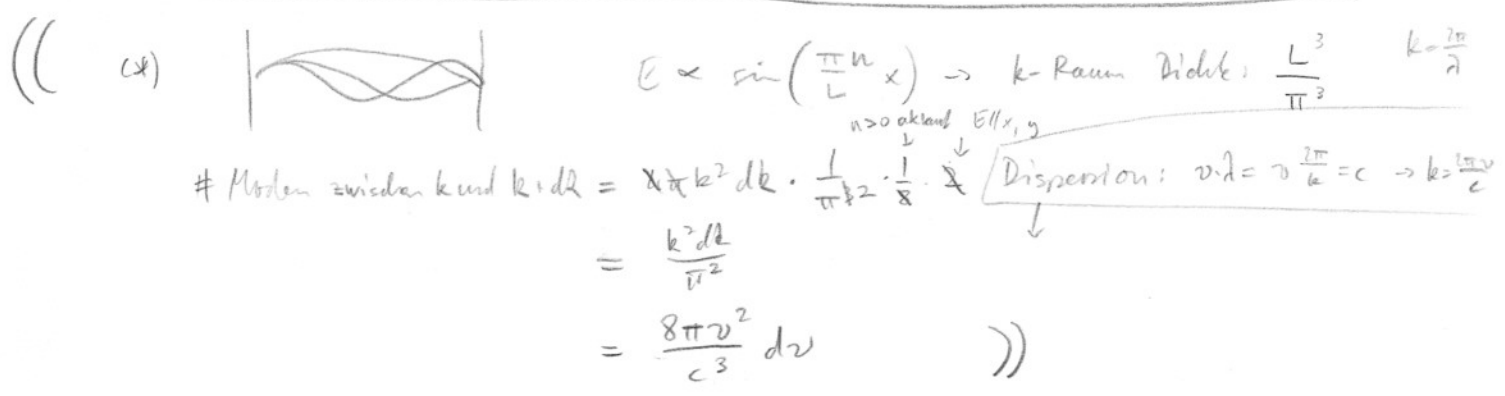 (( (*) E ∝ sin(π/L n x) → k-Raum Dichte: L³/π³ k = 2π/λ
n>0 E∥x, y
# Moden zwischen k und k+dk = 4π k² dk · 1/π³ · 1/8 · 2 Dispersion: ν·λ = ν 2π/k = c → k = 2πν/c
= k² dk/π²
= 8πν²/c³ dν ))